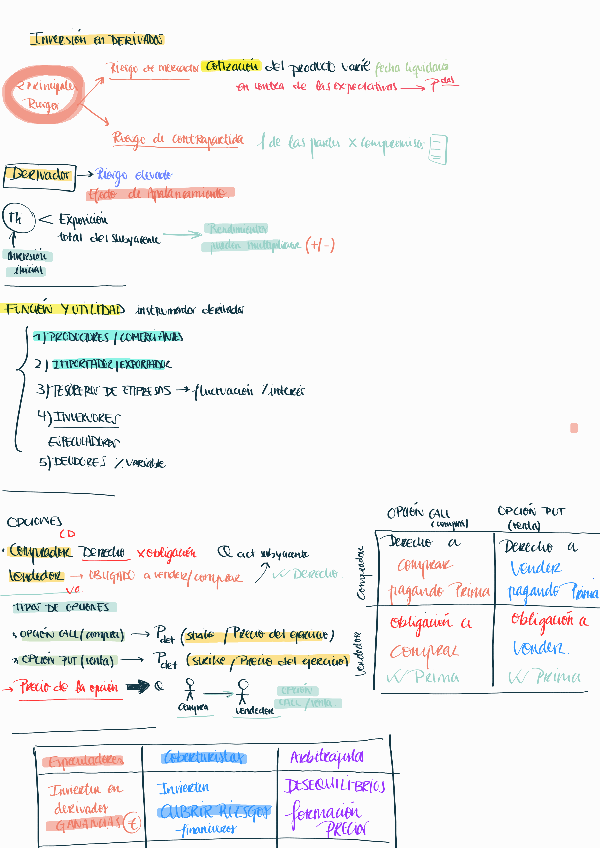 INVERSIÓN EN DERIVADOS
2 Principales Riesgos
Riesgo de mercado cotización del producto varíe fecha liquidación
en contra de las expectativas → Pdas
Riesgo de contrapartida 1 de las partes x compromiso
Derivados → Riesgo elevado
Efecto de Apalancamiento
< Exposición
total del subyacente → Rendimientos
pueden multiplicar (+/-)
inversión
inicial
FUNCIÓN Y UTILIDAD instrumentos derivados
1) PRODUCTORES / COMERCIANTES
2) IMPORTADOR/EXPORTADOR
3) TESOREROS DE EMPRESAS → fluctuación % interés
4) INVERSORES
ESPECULADORES
5) DEUDORES % VARIABLE
OPCIONES
CD
• Comprador Derecho x obligación Q act subyacente
Vendedor → OBLIGADO a vender/comprar
✓ Derecho
TIPOS DE OPCIONES
OPCIÓN CALL (compra) → Pdet (strike / Precio del ejercicio)
OPCIÓN PUT (venta) → Pdet (strike / Precio del ejercicio)
→ Precio de la opción → Q
Compra
Vendedor
OPCIÓN
CALL/venta
OPCIÓN CALL
(compra)
OPCIÓN PUT
(venta)
Comprador
Derecho a
comprar
pagando Prima
Derecho a
vender
pagando Prima
Vendedor
obligación a
comprar
✓ Prima
obligación a
vender
✓ Prima
Especuladores
Coberturistas
Arbitrajista
Invierten en
derivados
GANANCIAS €
Invierten
CUBRIR RIESGOS
-financieros
DESEQUILIBRIOS
formación
PRECIOS